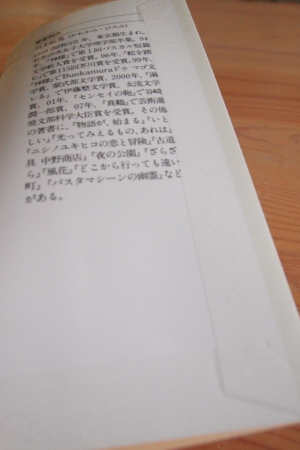 川上弘美(かわかみ・ひろみ)
年、お茶の水女子大学理学部卒業。94
年「神様」で第1回パスカル短篇
文学新人賞を受賞。96年、「蛇を踏
む」で第115回芥川賞を受賞。99年、
『神様』でBunkamuraドゥマゴ文
学賞、紫式部文学賞、2000年、『溺
レる』で伊藤整文学賞、女流文学
賞、01年、『センセイの鞄』で谷崎
潤一郎賞、07年、『真鶴』で芸術選
奨文部科学大臣賞を受賞。その他
の著書に、『物語が、始まる』『いと
しい』『光ってみえるもの、あれは』
『ニシノユキヒコの恋と冒険』『古道
具 中野商店』『夜の公園』『ざらざ
ら』『風花』『どこから行っても遠い
町』『パスタマシーンの幽霊』など
がある。